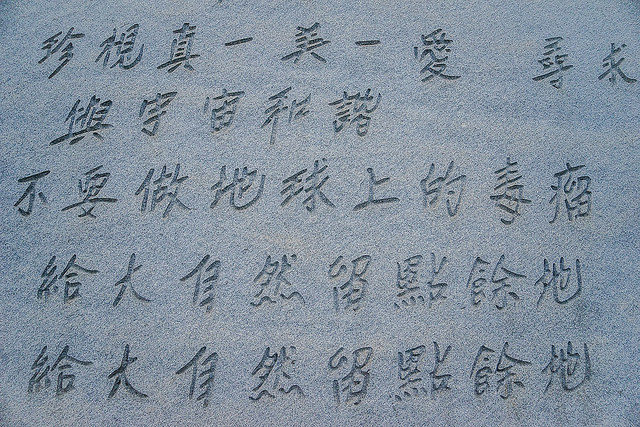 珍視真一美一愛 尋求
與宇宙和諧
不要做地球上的毒瘤
給大自然留點餘地
給大自然留點餘地